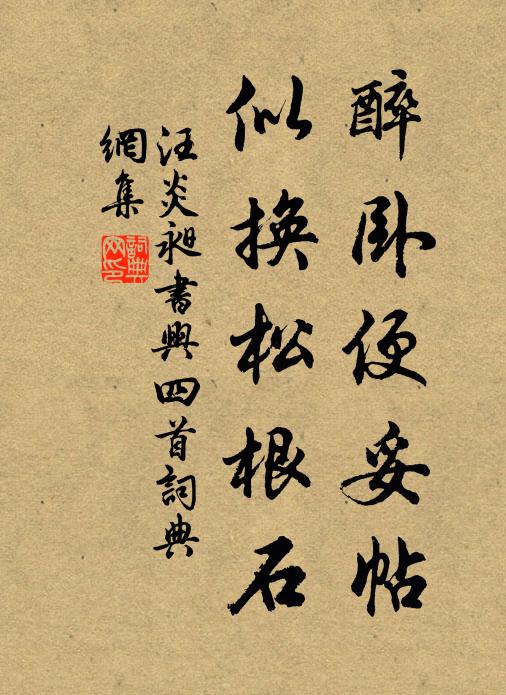 醉卧便妥帖
似換松根石
汪炎昶書興四首詞典
網集
詞典网印